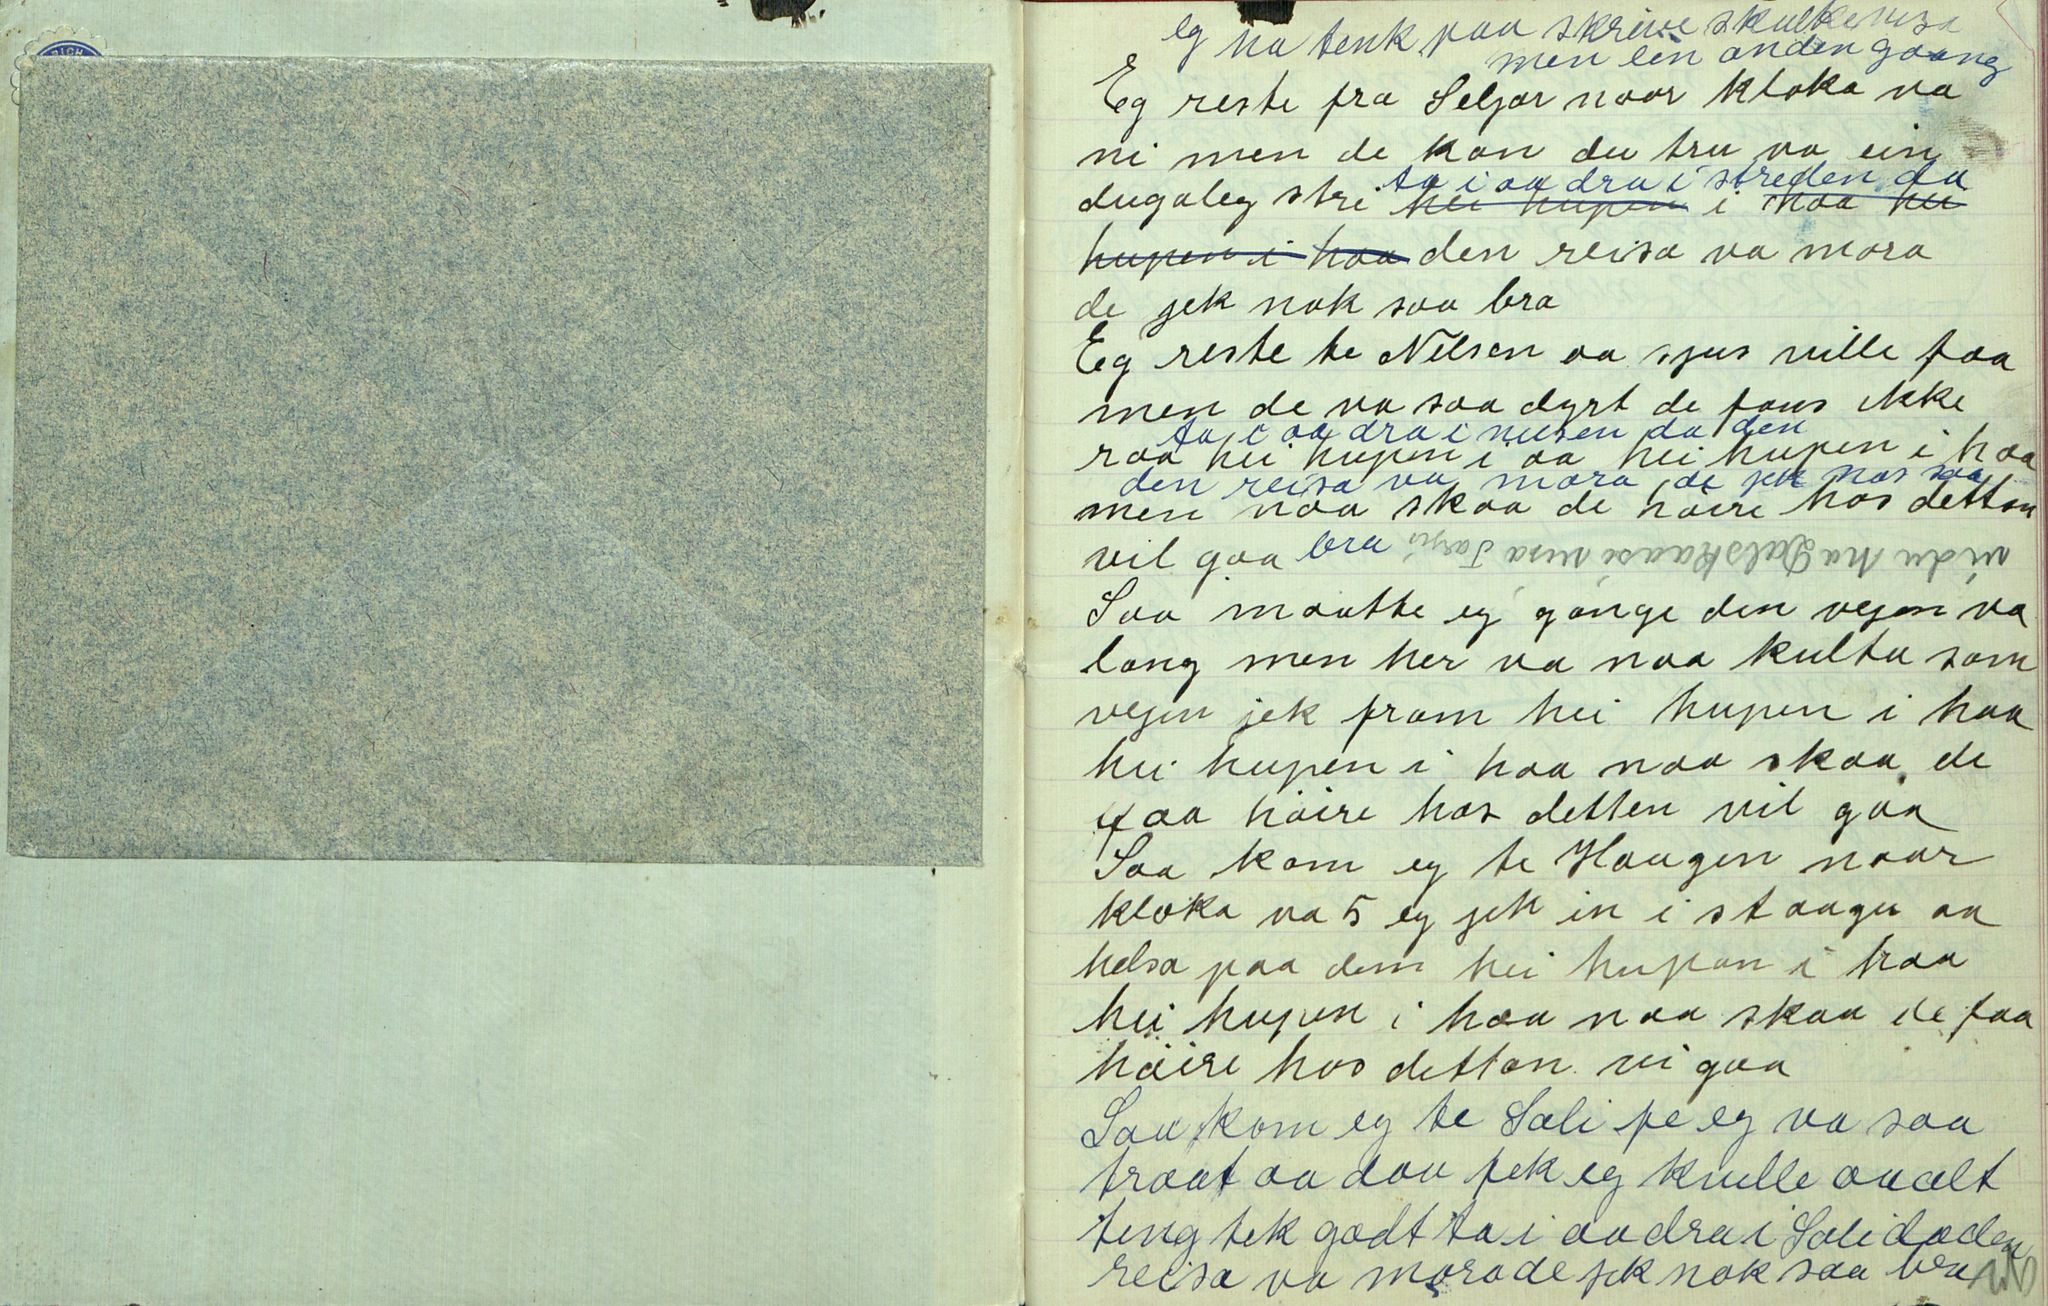 Eg ha tenk paa skrive skulkevisa
men ein anden gaang
Eg reste fra Seljor naar kloka va
ni men de kan du tru va ein
ta i aa dra i streden da
dugaleg stri hei hupen i haa hei
hupen i haa den reisa va mora
de jek nok saa bra
Eg reste te Nilsen aa sjus ville faa
men de va saa dyrt de fans ikke
ta i aa dra i nilsen da den
raa hei hupen i aa hei hupen i haa
den reisa va mora de jek nos saa
men naa skaa de høire hos detten
vil gaa bra
vi du ha Dalskaasi visa Torjus
Saa maatte eg gange den vejen va
lang men her va naa kulta som
vejen jek fram hei hupen i haa
hei hupen i haa naa skaa de
faa høire hos detten vil gaa
Saa kom eg te Haugen naar
kloka va 5 eg jek in i staagu aa
helsa paa dem hei hupan i haa
hei hupen i haa naa skaa de faa
høire hos dettan vi gaa
Saa kom eg te Sali fe eg va saa
trøat aa daa fek eg kville aa alt
teng tek godt ta i aa dra i Sali da den
reisa va mora de jek nok saa bra